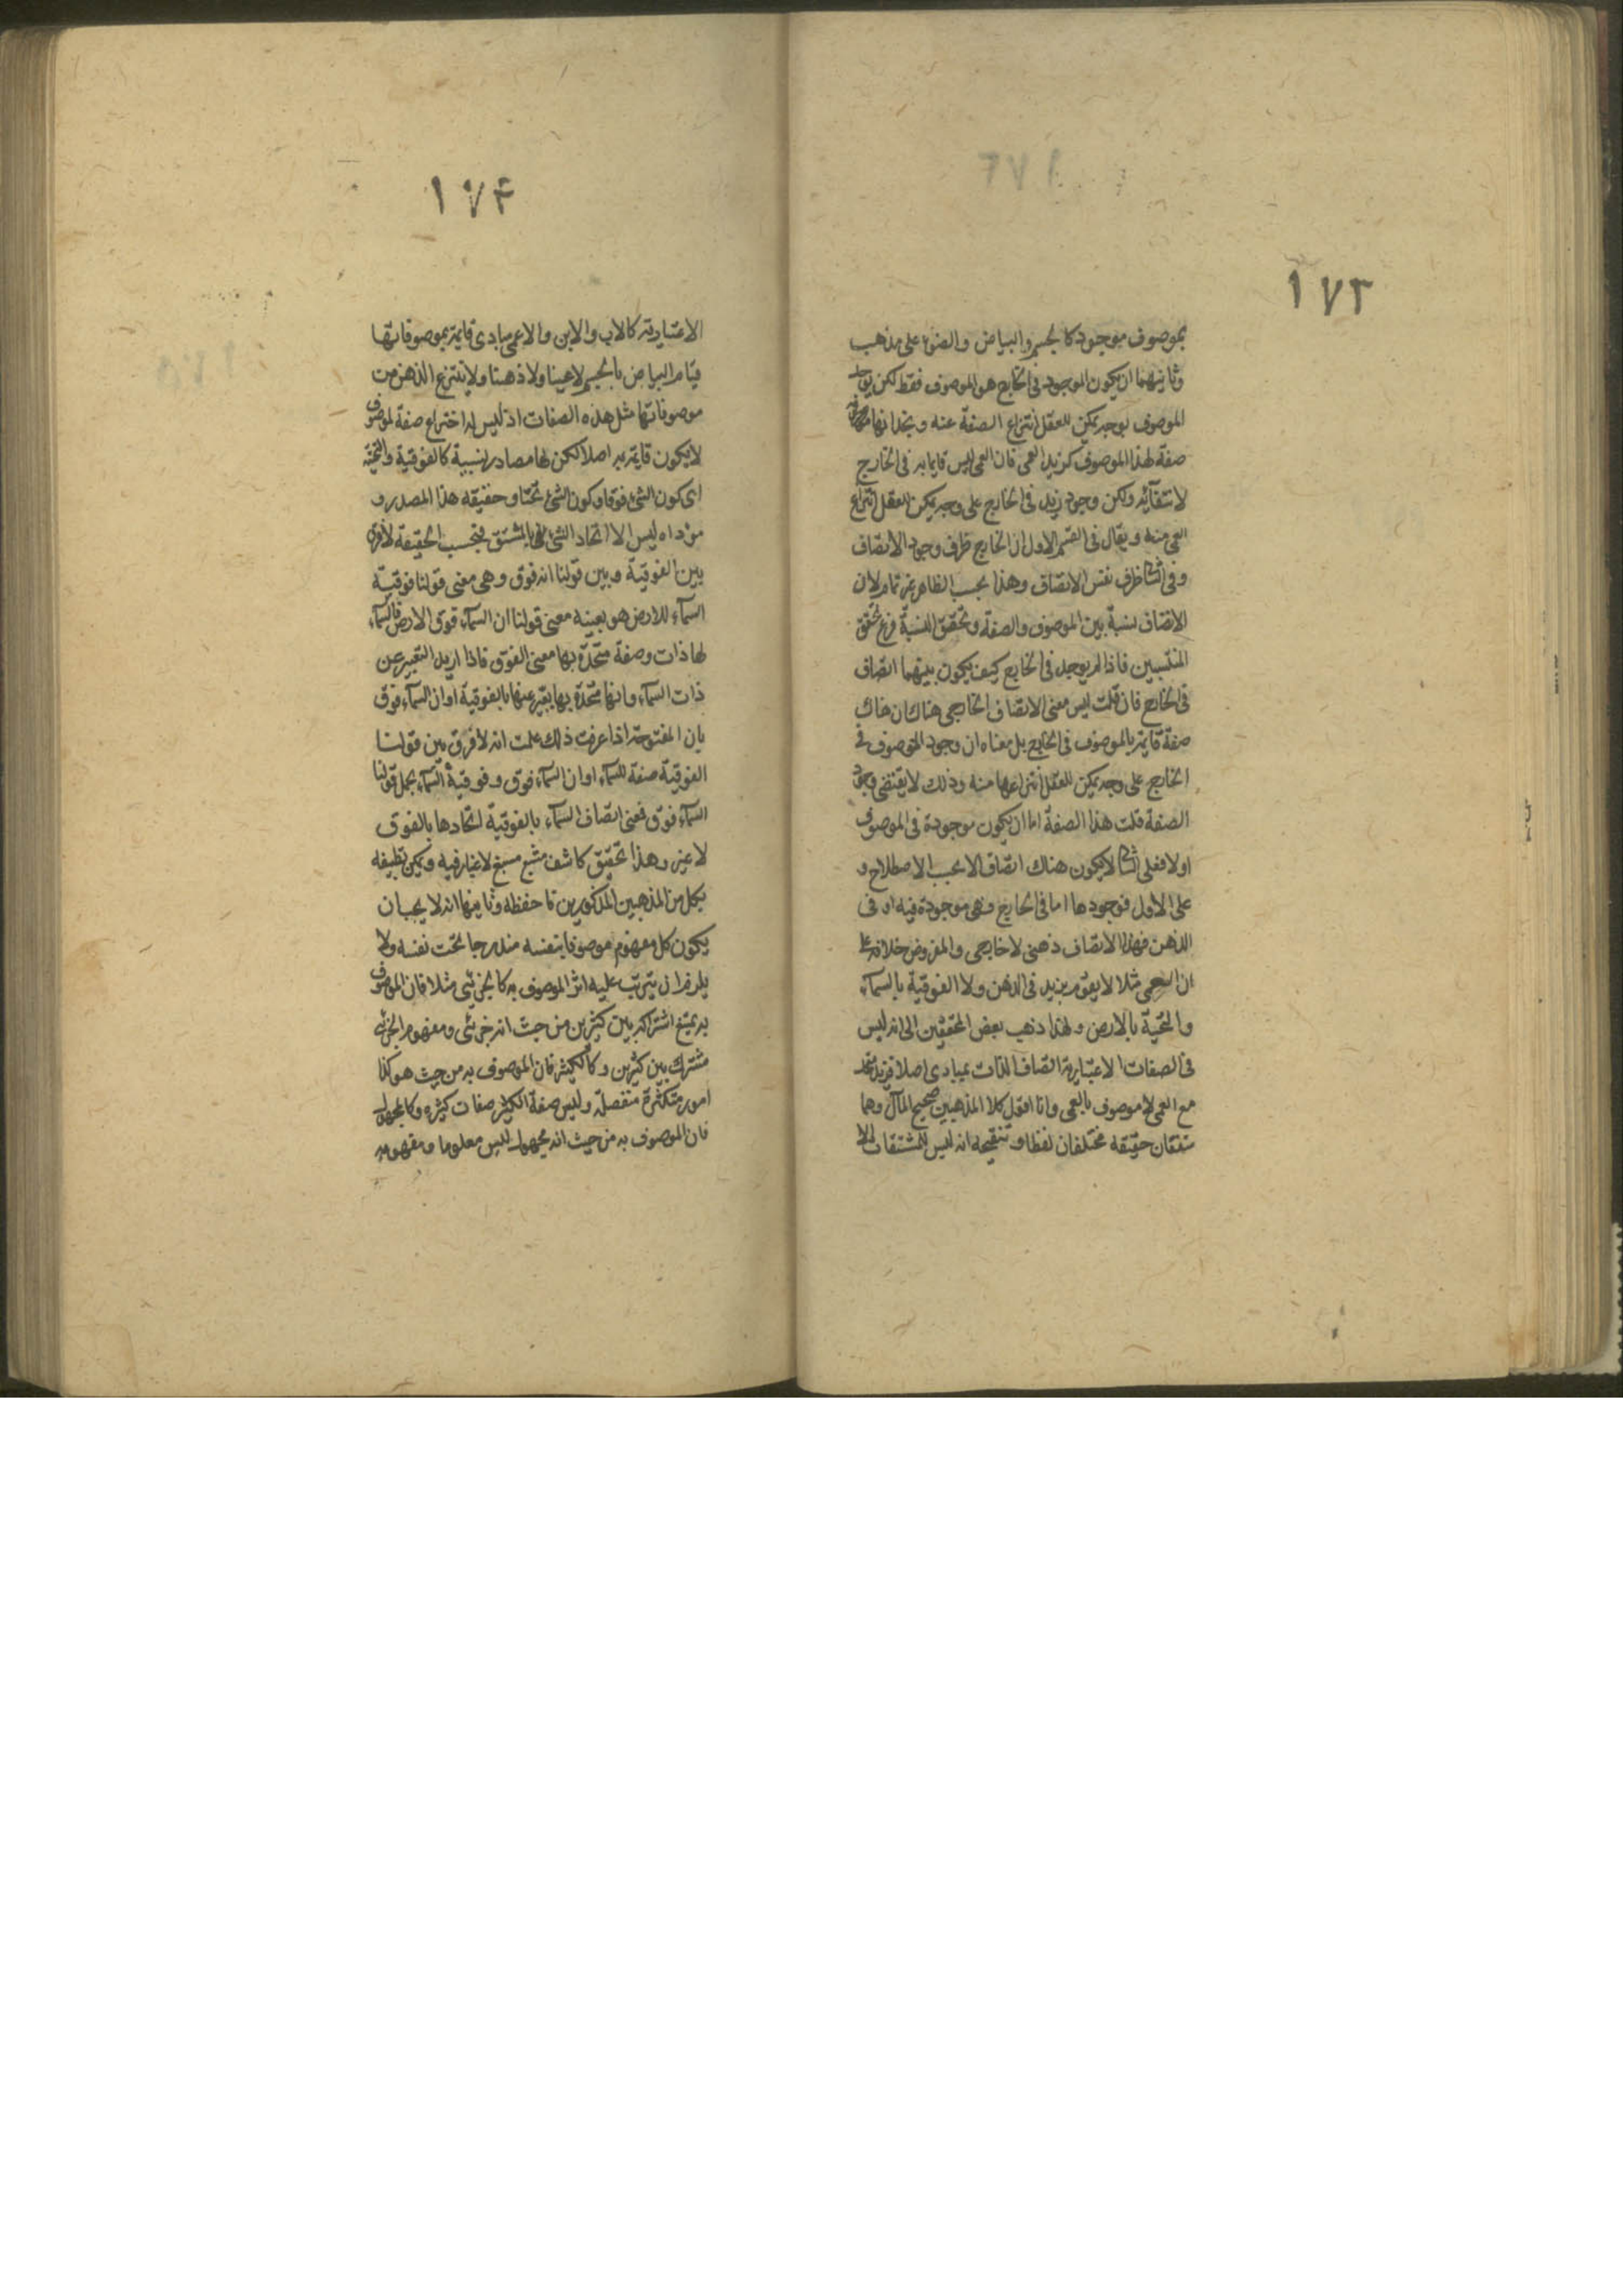 ١٧٣
بموصوف موجود كالجسم والبياض والضوء على مذهب
وثانيهما ان يكون الموجود في الخارج هو الموصوف فقط لكن يوجد
الموصوف بوجه يمكن للعقل انتزاع الصفة عنه و
صفة لهذا الموصوف كزيد العمى فان العمى ليس قايما به في الخارج
لانتفآئه ولكن وجود زيد في الخارج على وجه يمكن العقل انتزاع
العمى منه ويقال في القسم الاول ان الخارج ظرف وجود الاتصاف
وفي الثاني ظرف نفس الاتصاف وهذا بحسب الظاهر غير تمام لان
الاتصاف نسبة بين الموصوف والصفة وتحقق النسبة فرع تحقق
المنتسبين فاذا لم يوجد في الخارج كيف يكون بينهما اتصاف
في الخارج فان قلت ليس معنى الاتصاف الخارجي هناك ان هناك
صفة قايمة بالموصوف في الخارج بل معناه ان وجود الموصوف في
الخارج على وجه يمكن للعقل انتزاعها منه وذلك لا يقتضى وجود
الصفة قلت هذا الصفة اما ان يكون موجودة في الموصوف
اولا فعلى الثاني لا يكون هناك اتصاف الا بحسب الاصطلاح و
على الاول فوجودها اما في الخارج وهي موجودة فيه او في
الذهن فهذا الاتصاف ذهني لا خارجي والمفروض خلافه على
ان العمى مثلا لا يقوم بزيد في الذهن ولا الفوقية بالسمآء
والتحتية بالارض ولهذا ذهب بعض المحققين الى انه ليس
في الصفات الاعتبارية اتصاف الذات بمبادى اصلا فزيد متحد
مع العمى لا موصوف بالعمى وانا اقول كلا المذهبين صحيح المآل وهما
متفقان حقيقه مختلفان لفظا وتنقيحه انه ليس للمشتقات
١٧۴
الاعتبارية كالاب والابن والاعمى مبادى قايمة بموصوفاتها
قيام البياض بالجسم لا عينا ولا ذهنا ولا ينتزع الذهن من
موصوفاتها مثل هذه الصفات اذ ليس له اختراع صفة لموصوف
لا يكون قايمة به اصلا لكن لها مصادر نسبية كالفوقية والتحتية
اى كون الشئ فوقا وكون الشئ تحتا وحقيقه هذا المصدر و
مؤداه ليس الا اتحاد الشئ بالمشتق فبحسب الحقيقة لا فرق
بين الفوقية وبين قولنا انه فوق وهى معنى قولنا فوقية
السمآء للارض هو بعينه معنى قولنا ان السمآء فوق الارض فالسمآء
لها ذات وصفة متحدة بها معنى الفوق فاذا اريد التعبير عن
ذات السمآء وانها متحدة بها يعبر عنها بالفوقية او ان السمآء فوق
بان المفتوحة اذا عرفت ذلك علمت انه لا فرق بين قولنا
الفوقية صفة للسمآء او ان السمآء فوق وفوقية السمآء بجمل قولنا
السمآء فوق فمعنى اتصاف السمآء بالفوقية اتحادها بالفوق
لا غير وهذا تحقيق كاشف مشبع مسبغ لا غبار فيه ويمكن تطبيقه
بكل من المذهبين المذكورين فاحفظه وثانيهما انه لا يجب ان
يكون كل مفهوم موصوفا بنفسه مندرجا تحت نفسه ولا
يلزم ان يترتب عليه اثر الموصوف به كالجزئى مثلا فان الموصوف
به يمتنع اشتراكه بين كثيرين من حيث انه جزئى ومفهوم الجزئى
مشترك بين كثيرين وكالكثير فان الموصوف به من حيث هو كذا
امور متكثرة منفصلة وليس صفة الكثير صفات كثيره وكالمجهول
فان الموصوف به من حيث انه مجهول ليس معلوما ومفهومه